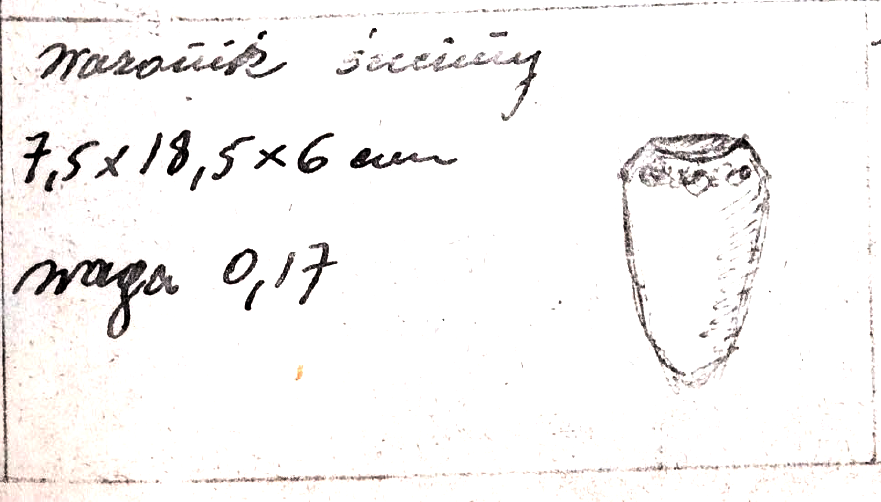 Wazonik ścienny
7,5 x 18,5 x 6 cm
waga 0,17